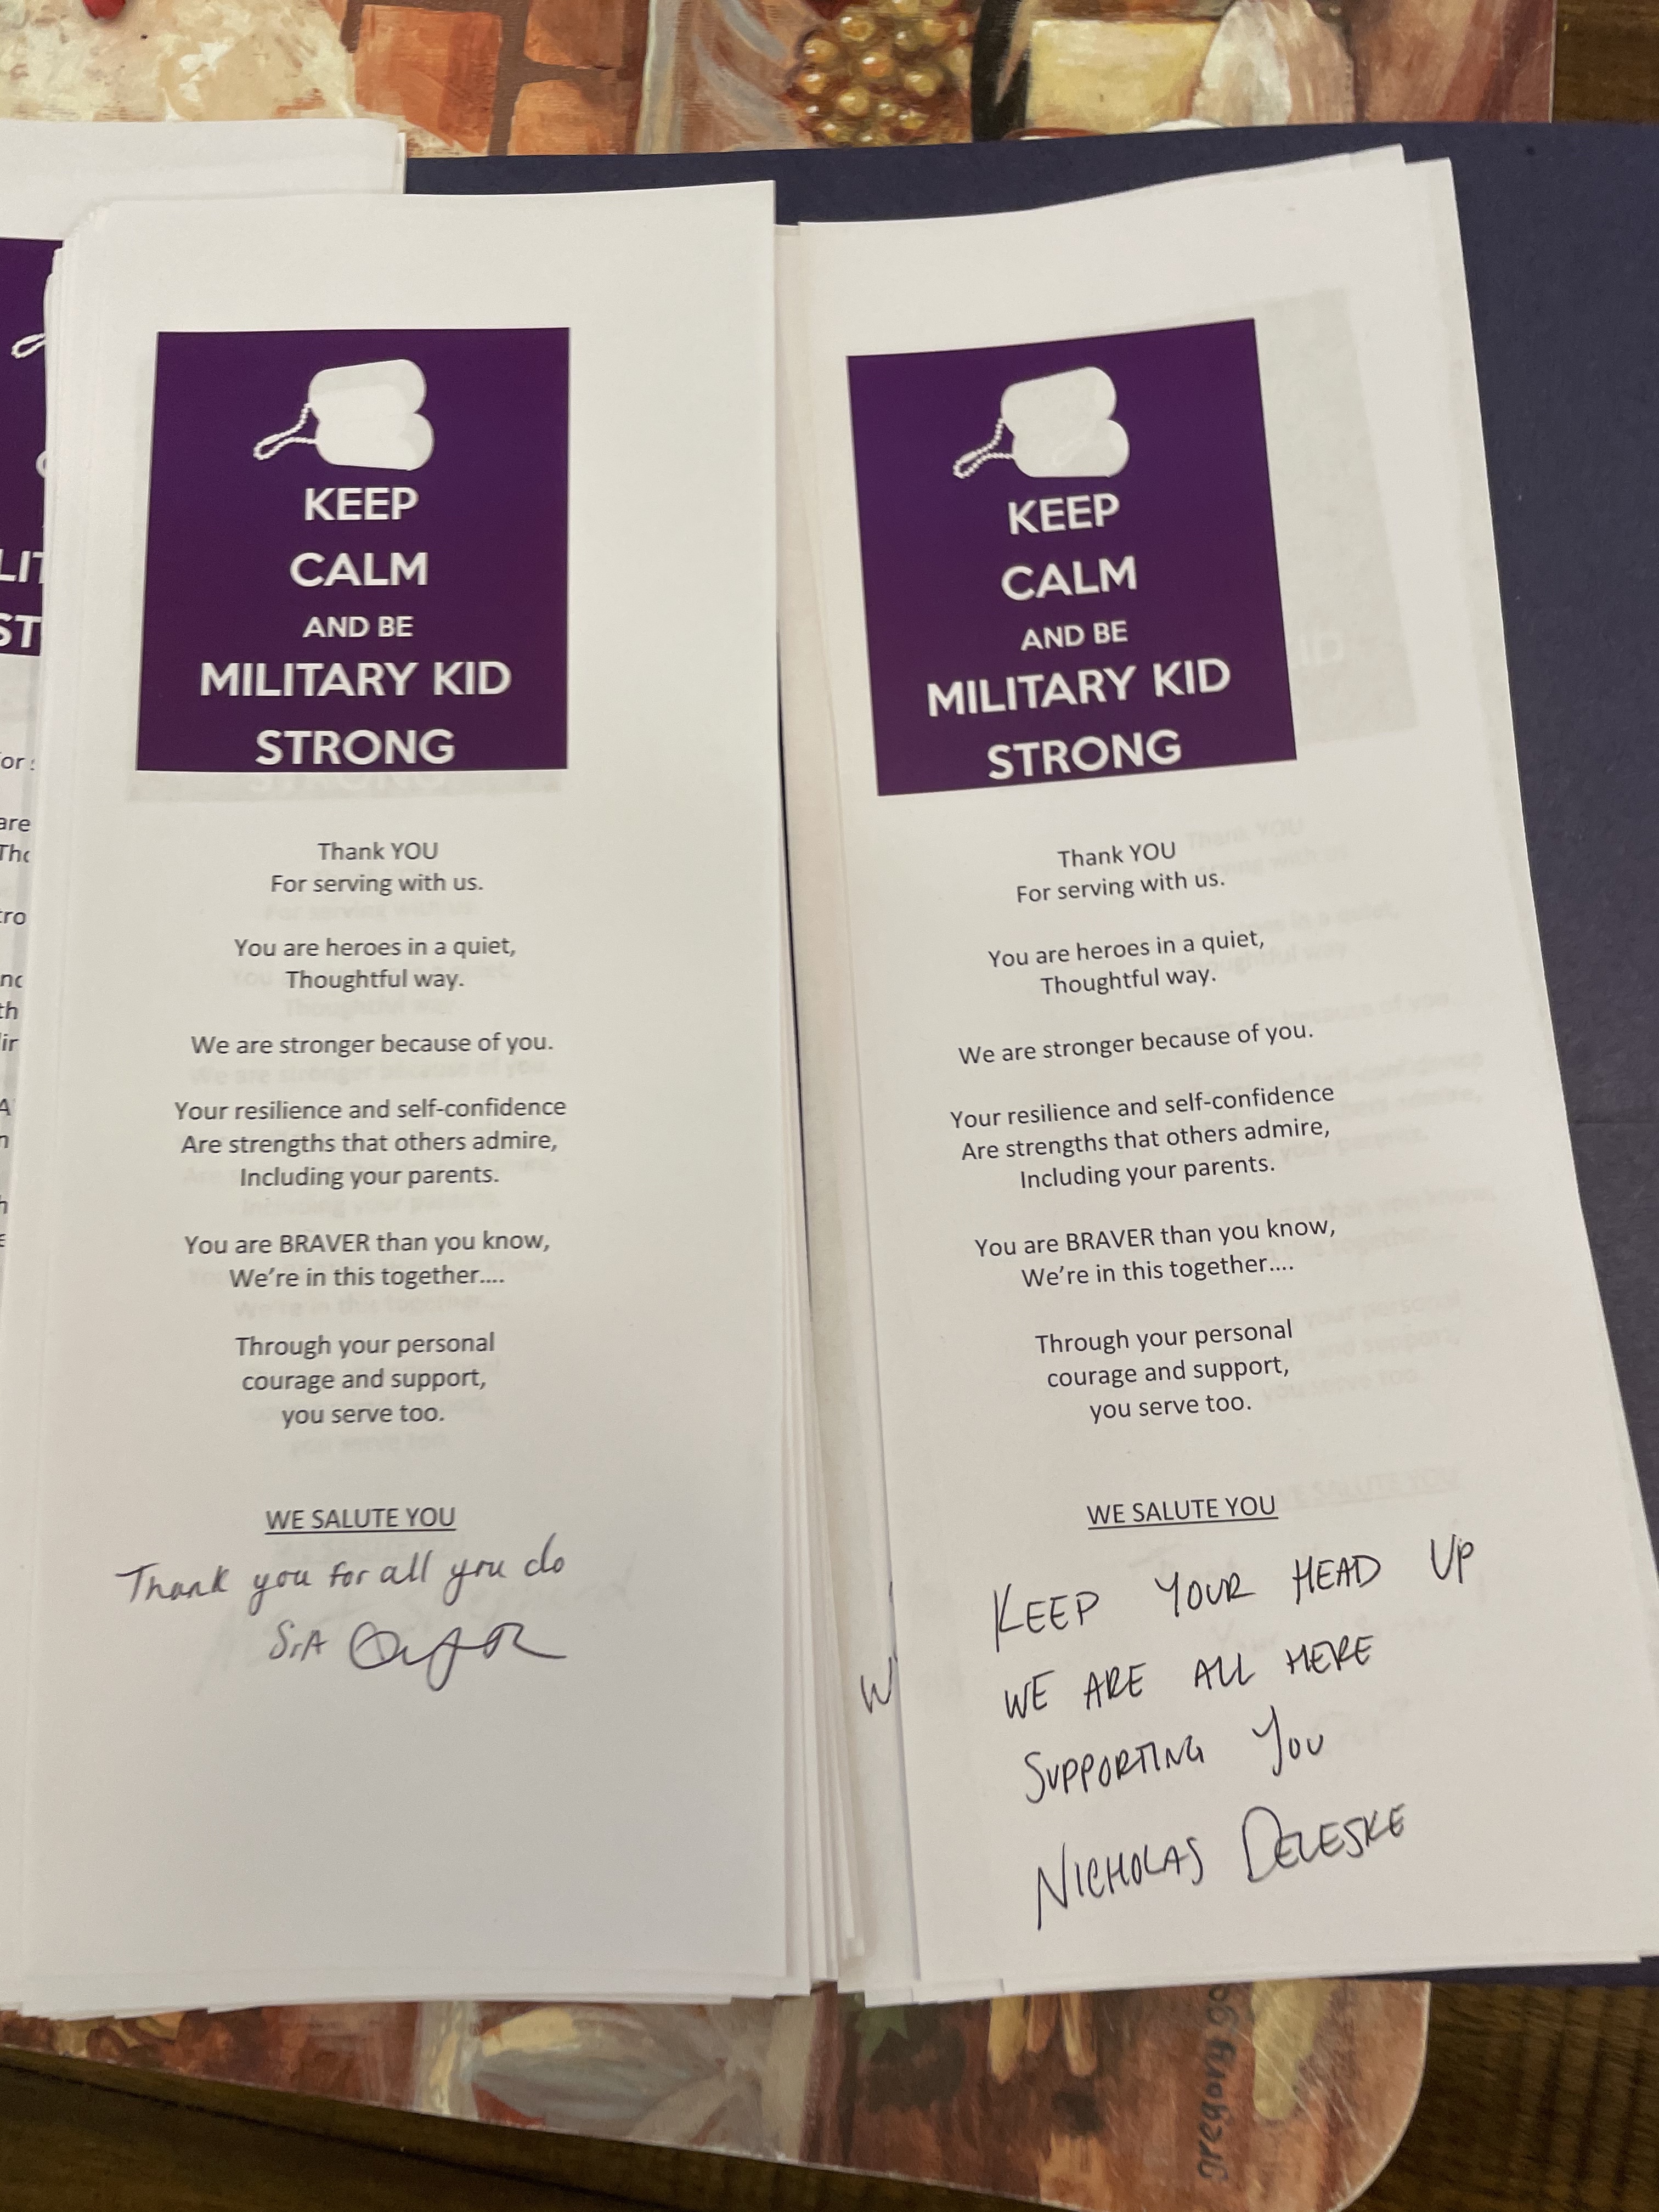 KEEP
CALM
AND BE
MILITARY KID
STRONG
Thank YOU
For serving with us.
You are heroes in a quiet,
Thoughtful way.
We are stronger because of you.
Your resilience and self-confidence
Are strengths that others admire,
Including your parents.
You are BRAVER than you know,
We're in this together....
Through your personal
courage and support,
you serve too.
WE SALUTE YOU
Thank you for all you do
SrA
KEEP
CALM
AND BE
MILITARY KID
STRONG
Thank YOU
For serving with us.
You are heroes in a quiet,
Thoughtful way.
We are stronger because of you.
Your resilience and self-confidence
Are strengths that others admire,
Including your parents.
You are BRAVER than you know,
We're in this together....
Through your personal
courage and support,
you serve too.
WE SALUTE YOU
KEEP YOUR HEAD UP
WE ARE ALL HERE
SUPPORTING YOU
NICHOLAS DELESKE
W
gregory